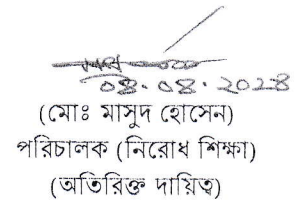 ০৪.০৪.২০২৪
(মোঃ মাসুদ হোসেন)
পরিচালক (নিরোধ শিক্ষা)
(অতিরিক্ত দায়িত্ব)